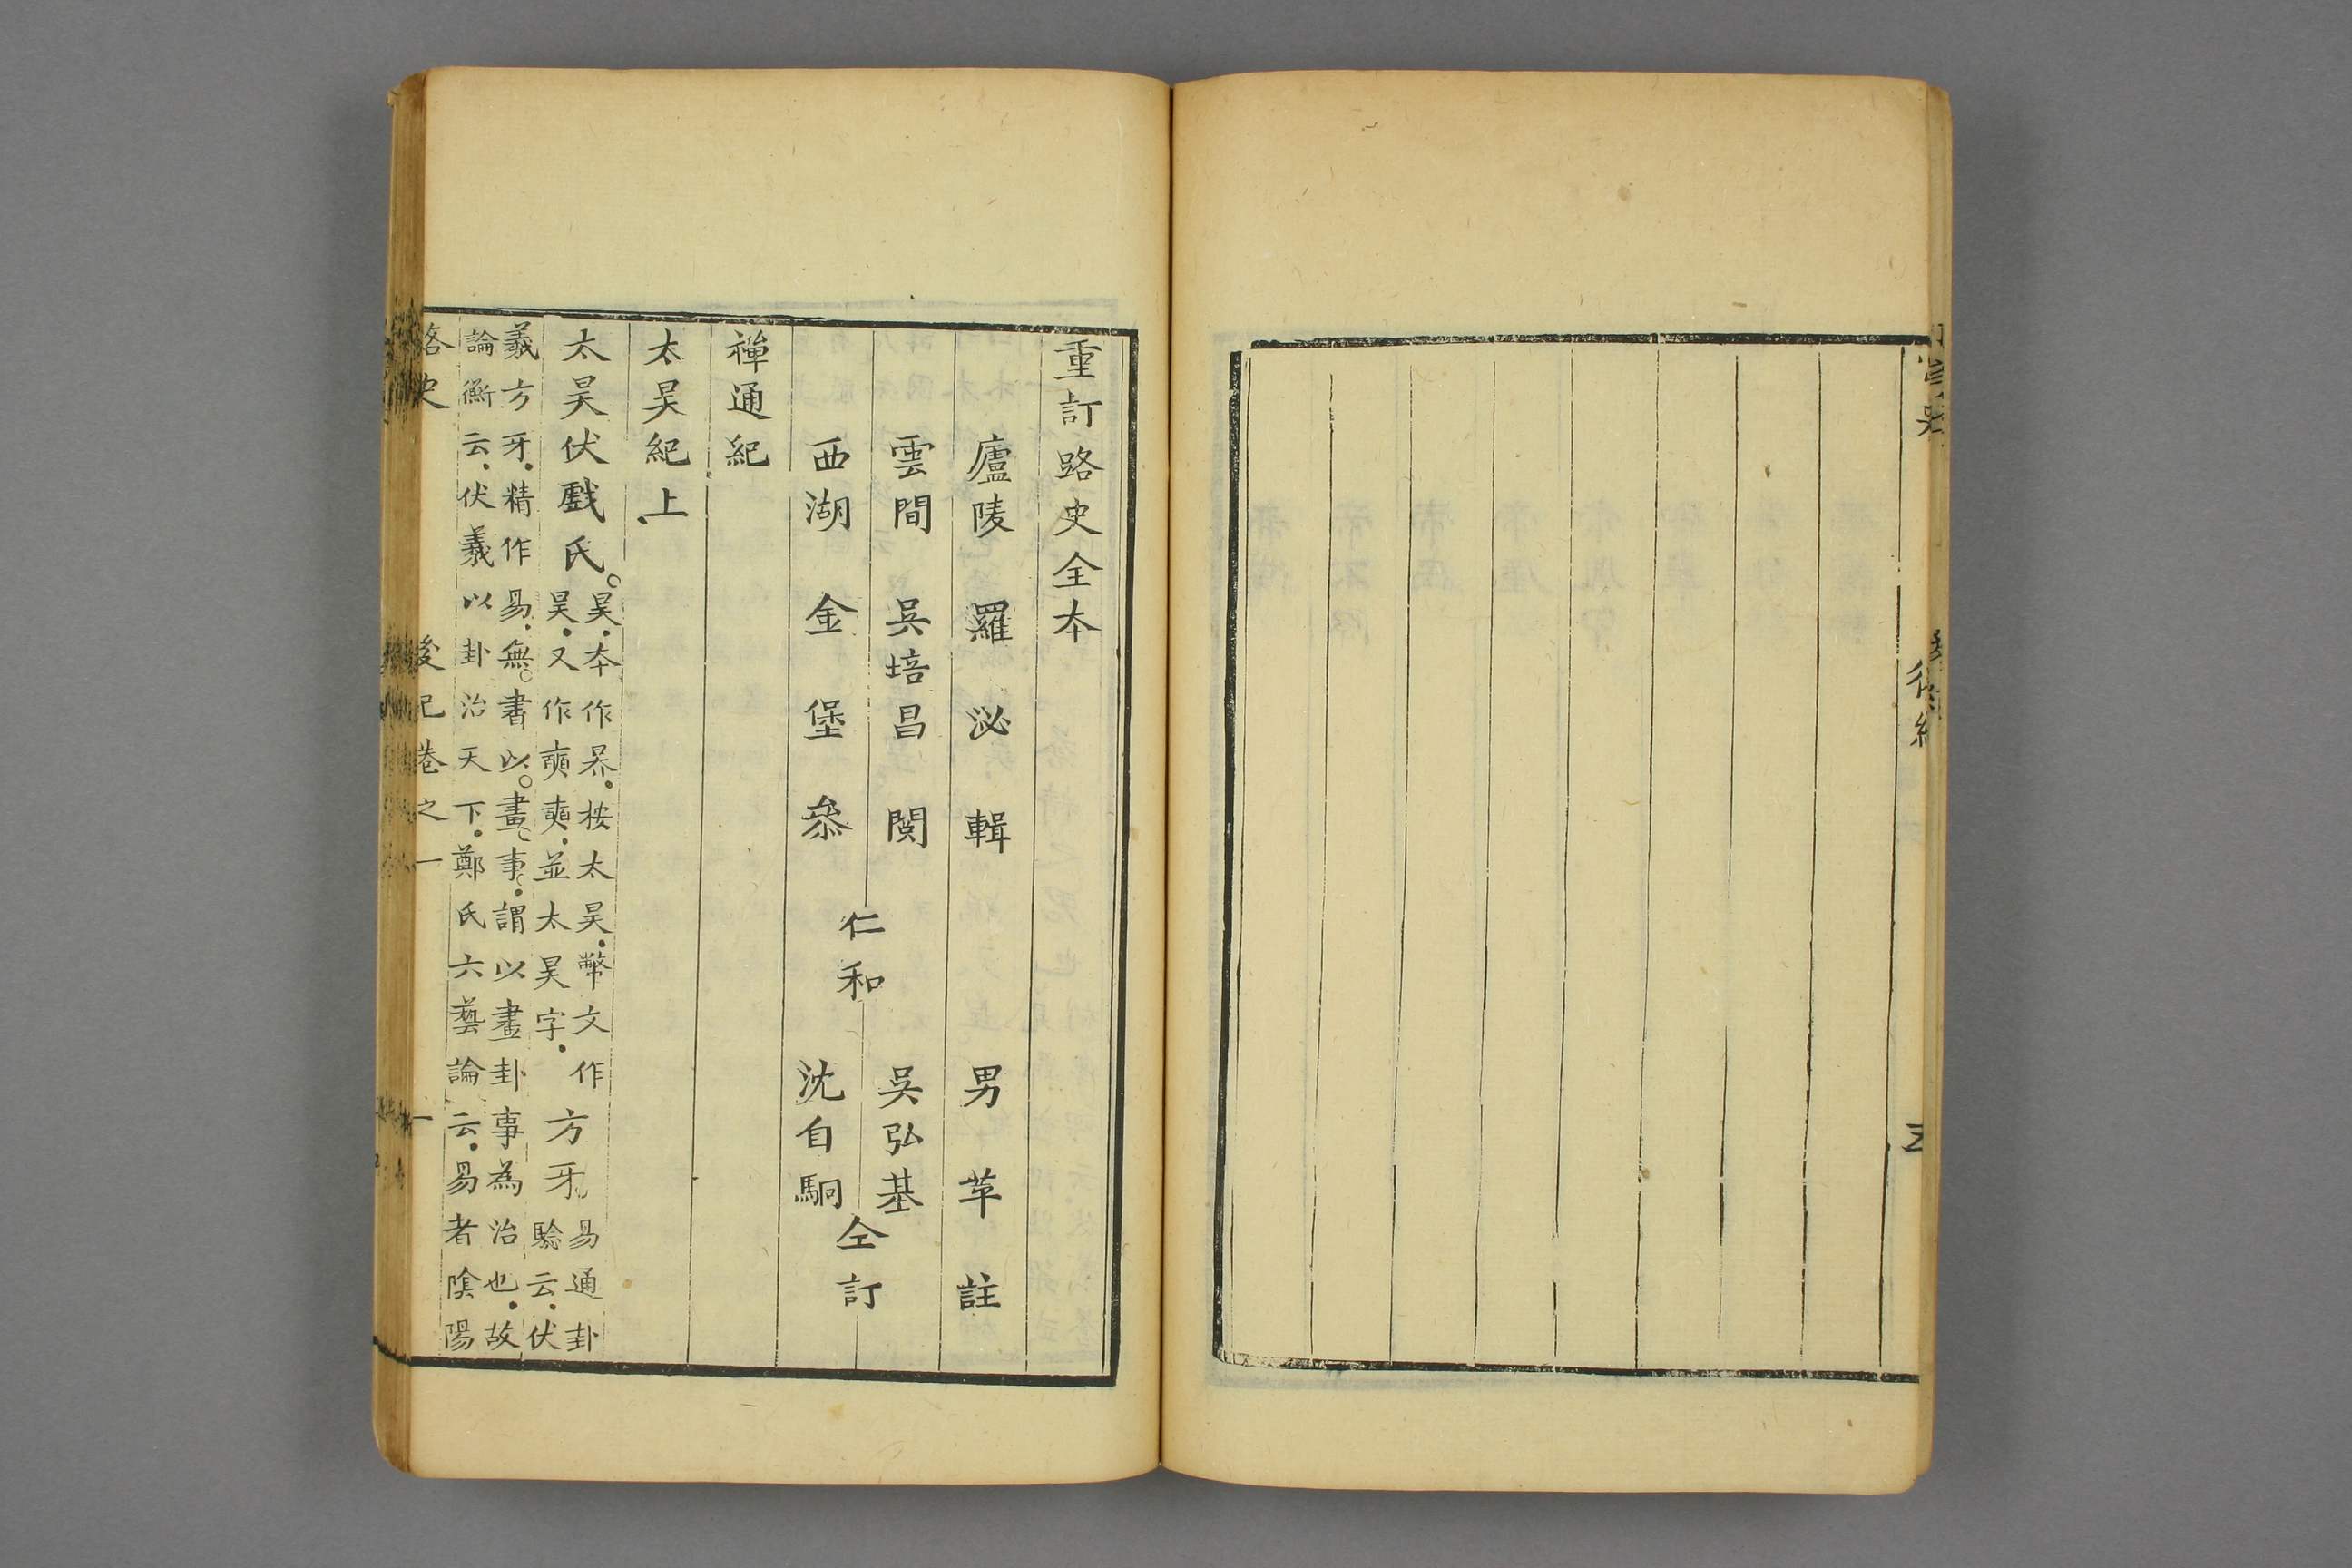 重訂路史全本
廬陵 羅泌 輯 男苹 註
雲間 吳培昌 閱
西湖 金堡 叅
仁和 吳弘基 沈自駉 仝訂
禪通紀
太昊紀上
太昊伏戲氏
昊本作昦按太昊幣文作
昊又作奭並太昊字
方牙
易通卦
驗云伏
羲方牙精作易無書以畫事謂以畫卦事為治也故
論衡云伏羲以卦治天下鄭氏六藝論云易者陰陽
路史 後紀卷之一 一